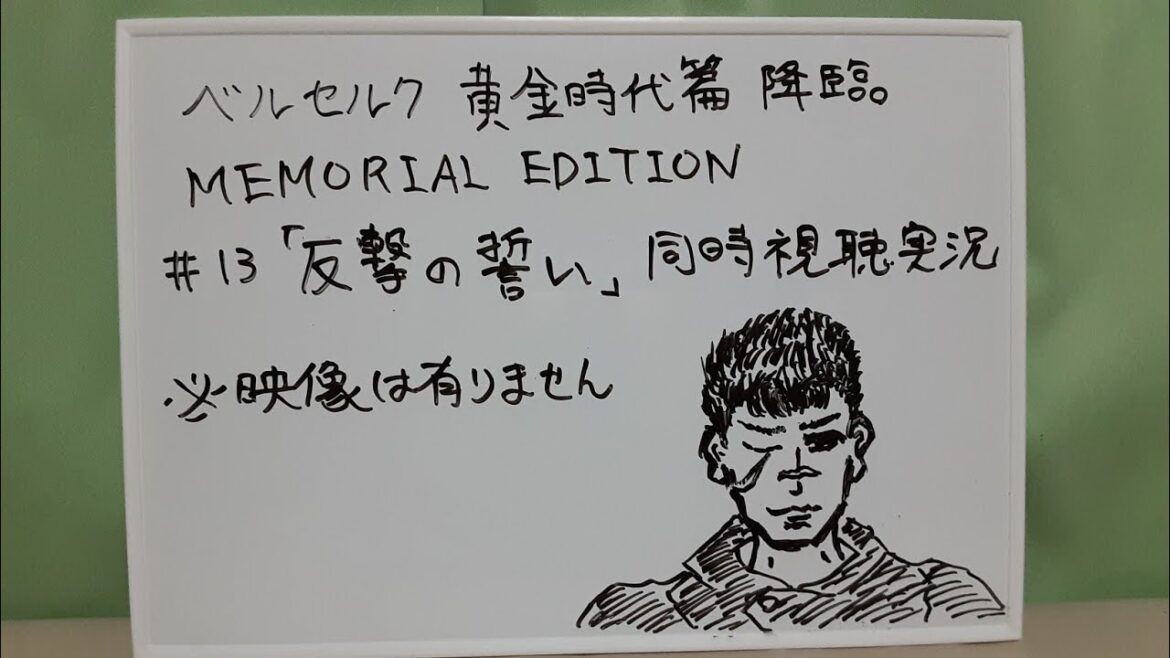 ベルセルク 黄金時代篇 降臨
MEMORIAL EDITION
#13「反撃の誓い」同時視聴実況
※映像は有りません